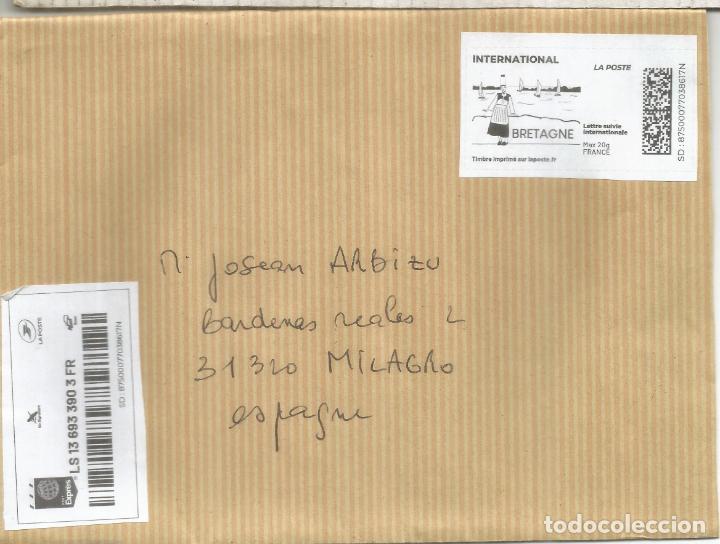 INTERNATIONAL
LA POSTE
BRETAGNE
Lettre suivie
internationale
Max 20g
FRANCE
Timbre imprimé sur laposte.fr
SD : 87500077038617N
M. Josean ARBIZU
Bardenas reales 2
31320 MILAGRO
espagne
LA POSTE
SD : 87500077038617N
LS 13 693 390 3 FR
Exprès
todocoleccion
todocoleccion.net